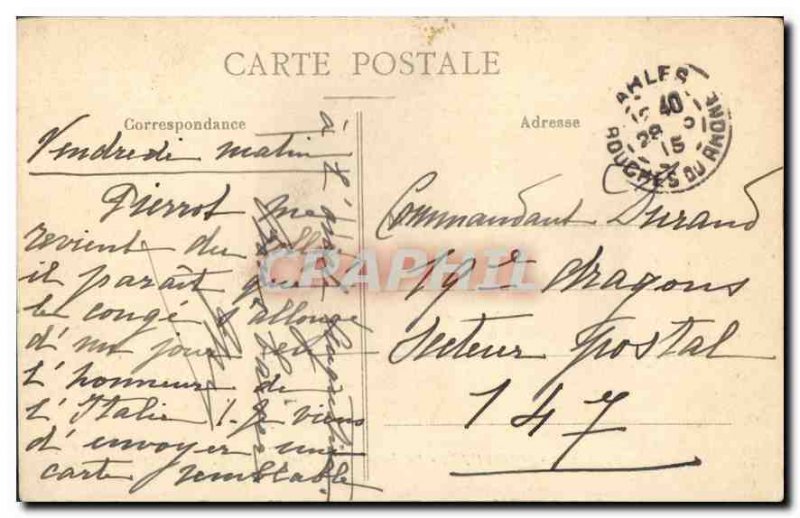 CARTE POSTALE
Correspondance
Vendredi matin
Pierrot me
revient du
il paraît que
le congé s'allonge
d'un jour en
l'honneur de
l'Italie ! Je viens
d'envoyer une
carte semblable
à
Adresse
Commandant Durand
19e dragons
Secteur postal
147
ARLES
40
28 5
15
BOUCHES DU RHONE
CPARAMA